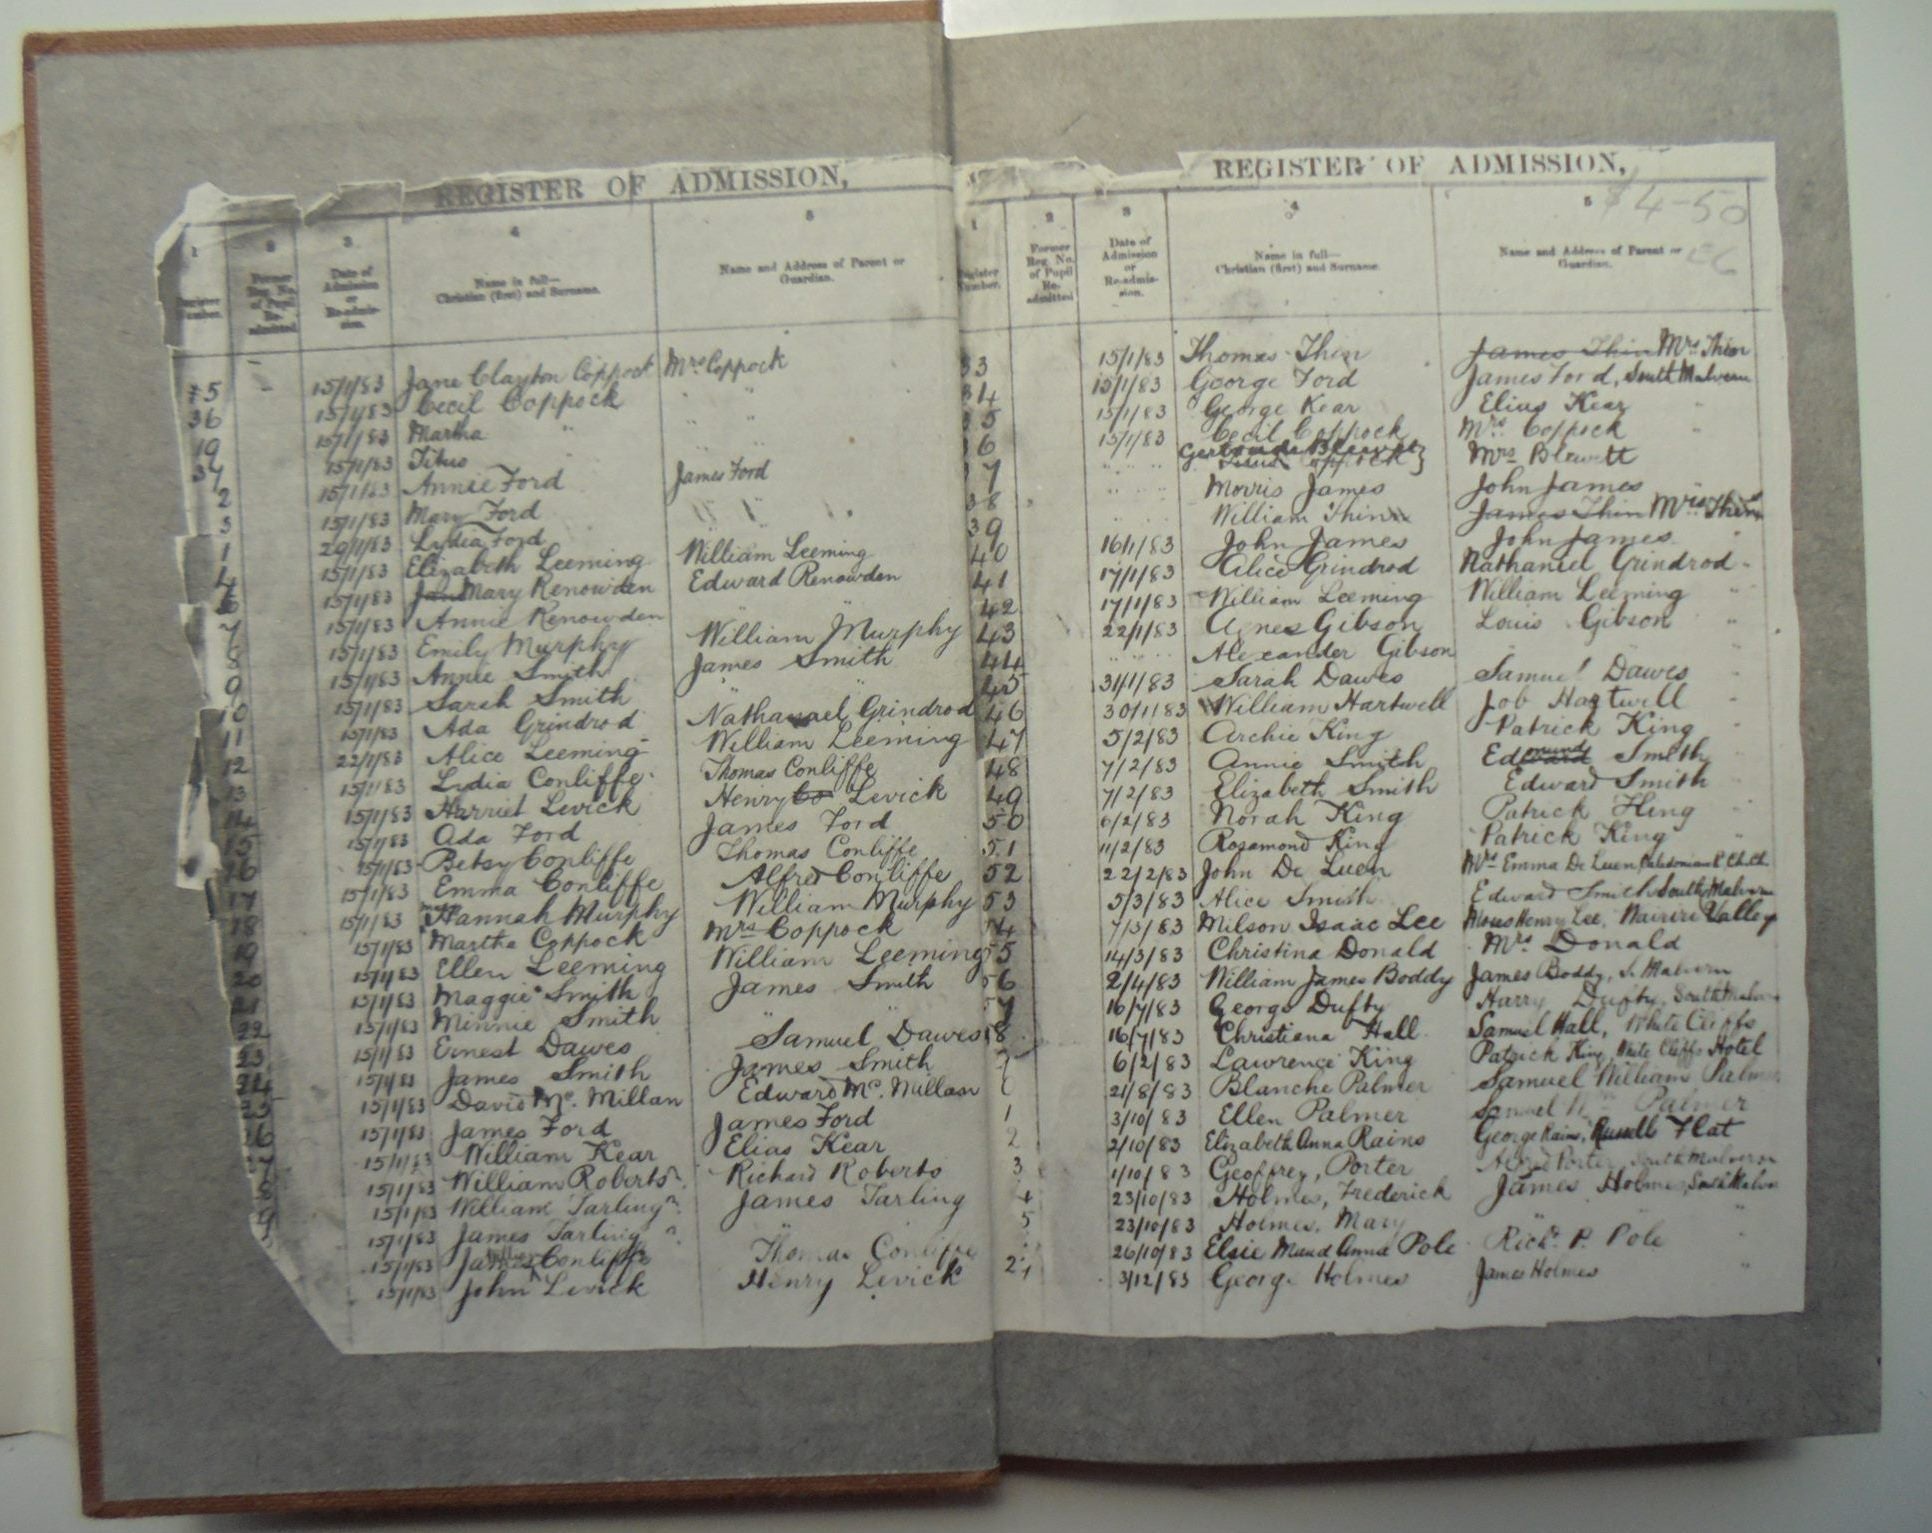 REGISTER OF ADMISSION,
1 2 3 4 5
Register Number.
Former Reg. No. of Pupil Re-admitted.
Date of Admission or Re-admission.
Name in full— Christian (first) and Surname.
Name and Address of Parent or Guardian.
15/1/83 Jane Clayton Coppock Mrs Coppock
36 15/1/83 Cecil Coppock " "
19 15/1/83 Martha " " "
37 15/1/83 Titus
2 15/1/83 Annie Ford James Ford
3 15/1/83 Mary Ford " "
1 29/1/83 Lydia Ford
4 15/1/83 Elizabeth Leeming William Leeming
15/1/83 Mary Renowden Edward Renowden
6 15/1/83 Annie Renowden " "
7 15/1/83 Emily Murphy William Murphy
8 15/1/83 Annie Smith James Smith
9 15/1/83 Sarah Smith " "
10 15/1/83 Ada Grindrod Nathanael Grindrod
11 22/1/83 Alice Leeming William Leeming
12 15/1/83 Lydia Conliffe Thomas Conliffe
13 15/1/83 Harriet Levick Henry Levick
14 15/1/83 Ada Ford James Ford
15 15/1/83 Betsy Conliffe Thomas Conliffe
16 15/1/83 Emma Conliffe Alfred Conliffe
17 15/1/83 Hannah Murphy William Murphy
18 15/1/83 Martha Coppock Mrs Coppock
19 15/1/83 Ellen Leeming William Leeming
20 15/1/83 Maggie Smith James Smith
21 15/1/83 Minnie Smith " "
22 15/1/83 Ernest Dawes Samuel Dawes
23 15/1/83 James Smith James Smith
24 15/1/83 David Mc. Millan Edward Mc. Millan
15/1/83 James Ford James Ford
15/1/83 William Kear Elias Kear
15/1/83 William Roberts Richard Roberts
15/1/83 William Tarling James Tarling
15/1/83 James Tarling " "
15/1/83 Conliffe Thomas Conliffe
15/1/83 John Levick Henry Levick
REGISTER OF ADMISSION,
$4-50
1 2 3 4 5
Register Number.
Former Reg. No. of Pupil Re-admitted
Date of Admission or Re-admission.
Name in full— Christian (first) and Surname.
Name and Address of Parent or Guardian.
33 15/1/83 Thomas Thin James Thin Mrs Thin
34 15/1/83 George Ford James Ford, South Malvern
35 15/1/83 George Kear Elias Kear "
36 15/1/83 Cecil Coppock Mrs Coppock "
37 " " " Gertrude Blewett Mrs Blewett
38 " " " Morris James John James
39 " " " William Thin James Thin Mrs Thin
40 16/1/83 John James John James "
41 17/1/83 Alice Grindrod Nathaniel Grindrod "
42 17/1/83 William Leeming William Leeming "
43 22/1/83 Agnes Gibson Louis Gibson "
44 " " " Alexander Gibson
45 31/1/83 Sarah Dawes Samuel Dawes
46 30/1/83 William Hartwell Job Hartwell
47 5/2/83 Archie King Patrick King
48 7/2/83 Annie Smith Edmund Smith
49 7/2/83 Elizabeth Smith Edward Smith
50 6/2/83 Norah King Patrick King
51 11/2/83 Rosamond King Patrick King
52 22/2/83 John De Luen Mrs Emma De Luen, Caledonian R. Ch.Ch.
53 5/3/83 Alice Smith Edward Smith South Malvern
54 7/3/83 Milson Isaac Lee Henry Lee, Wairiri Valley
55 14/3/83 Christina Donald Mrs Donald
56 2/4/83 William James Boddy James Boddy, S. Malvern
57 16/7/83 George Dufty Harry Dufty, South Malvern
58 16/7/83 Christiana Hall Samuel Hall, White Cliffs
6/2/83 Lawrence King Patrick King, White Cliffs Hotel
21/8/83 Blanche Palmer Samuel William Palmer
1 3/10/83 Ellen Palmer Samuel Wm Palmer
2 2/10/83 Elizabeth Anna Rains George Rains, Russells Flat
3 1/10/83 Geoffrey, Porter Alfred Porter, South Malvern
4 23/10/83 Holmes, Frederick James Holmes, South Malvern
5 23/10/83 Holmes, Mary " "
26/10/83 Elsie Maud Anna Pole Richd. P. Pole
3/12/83 George Holmes James Holmes "